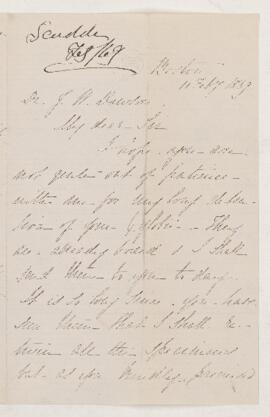 Scudder
Feb /69
Boston
10 Feby 1869
Dr. J. W. Dawson
My dear Sir
I hope you are
not quite out of patience
with me for my long deten-
tion of your They
are already boxed & I shall
send them to you to day.
It is so long since you have
seen them that I shall re-
tain all the specimens
but as you kindly promised